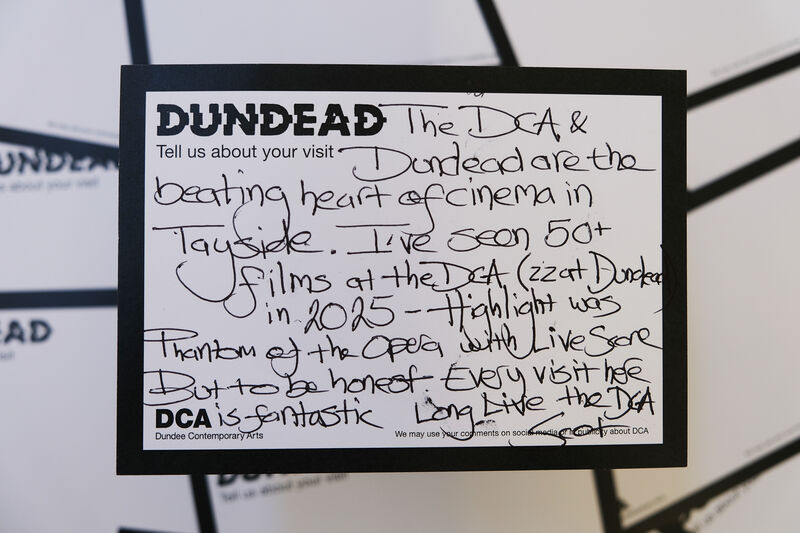 DUNDEAD The DCA &
Tell us about your visit Dundead are the
beating heart of cinema in
Tayside. I've seen 50+
films at the DCA (22 at Dundead
in 2025 - Highlight was
Phantom of the Opera with Live Score
But to be honest. Every visit here
DCA is fantastic Long Live the DCA
Dundee Contemporary Arts
We may use your comments on social media or in publicity about DCA
UNDEAD
about your visit
EAD